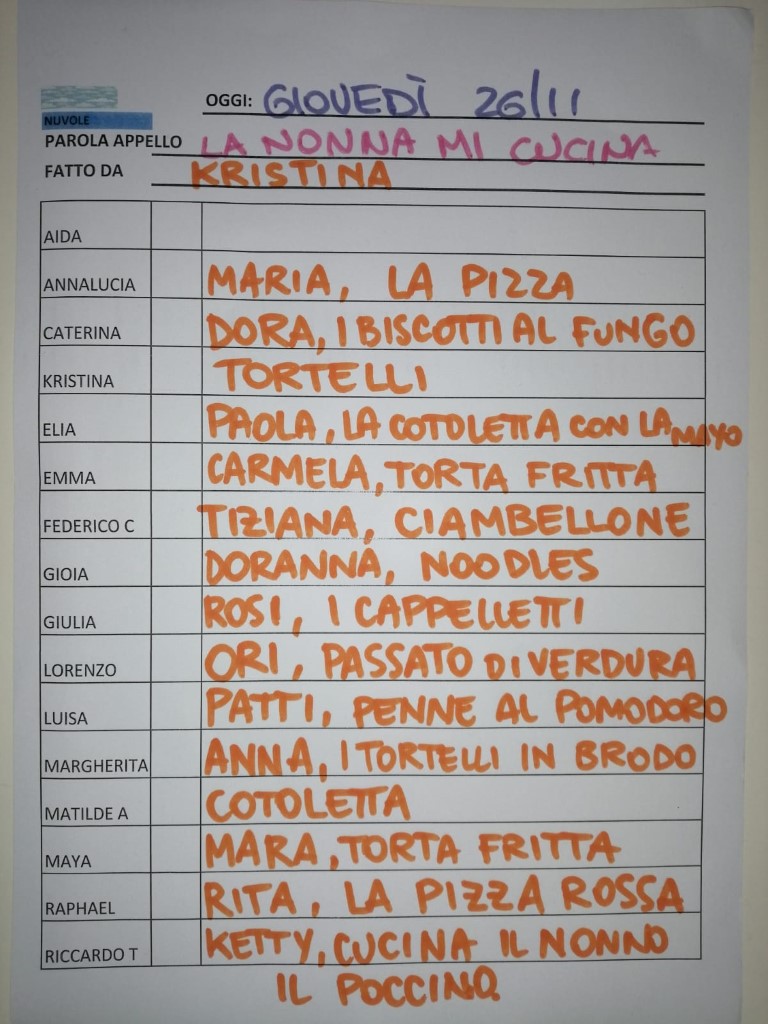 OGGI: GIOVEDÌ 26/11
NUVOLE
PAROLA APPELLO LA NONNA MI CUCINA
FATTO DA KRISTINA
AIDA
ANNALUCIA MARIA, LA PIZZA
CATERINA DORA, I BISCOTTI AL FUNGO
KRISTINA TORTELLI
ELIA PAOLA, LA COTOLETTA CON LA MAYO
EMMA CARMELA, TORTA FRITTA
FEDERICO C TIZIANA, CIAMBELLONE
GIOIA DORANNA, NOODLES
GIULIA ROSI, I CAPPELLETTI
LORENZO ORI, PASSATO DI VERDURA
LUISA PATTI, PENNE AL POMODORO
MARGHERITA ANNA, I TORTELLI IN BRODO
MATILDE A COTOLETTA
MAYA MARA, TORTA FRITTA
RAPHAEL RITA, LA PIZZA ROSSA
RICCARDO T KETTY, CUCINA IL NONNO
IL POCCINO.